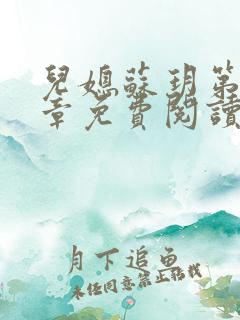 兒媳蘇玥第
章免費閱讀
月下追魚
未經同意禁止轉載